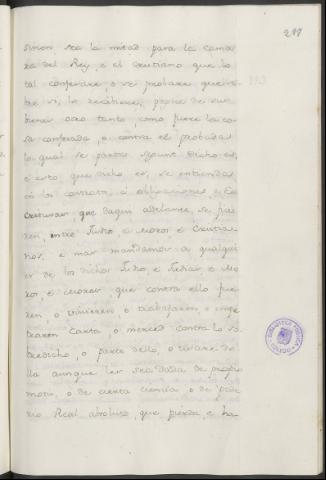 217
sinon sea la mitad para la cama
ra del Rey, e el cristiano que lo
tal confesare, o se probare que en
tre si, lo recibiere, peche de sus
bienes otro tanto como fuere la co
sa confesada, o contra el probada
lo qual se parta segunt dicho es,
e esto que dicho es, se entienda
en los contratos, e obligaciones, e Es
crituras que dagui adelante, se ficie
ren, entre Judio, e Moros e Cristia
nos, e mas mandamos a qualqui
er de los dichos Judios, e Judias, e Mo
ros, e Moras, que contra ello fue
ren, o vinieren, o trabajaren, o inpe
traren Carta, o merced contra lo so
bredicho, o parte dello, o usare de
lla aunque les sea dada de propio
motu, o de cierta ciencia, o de pode
rio Real absoluto, que pierda, e ha
BIBLIOTECA PUBLICA
TOLEDO